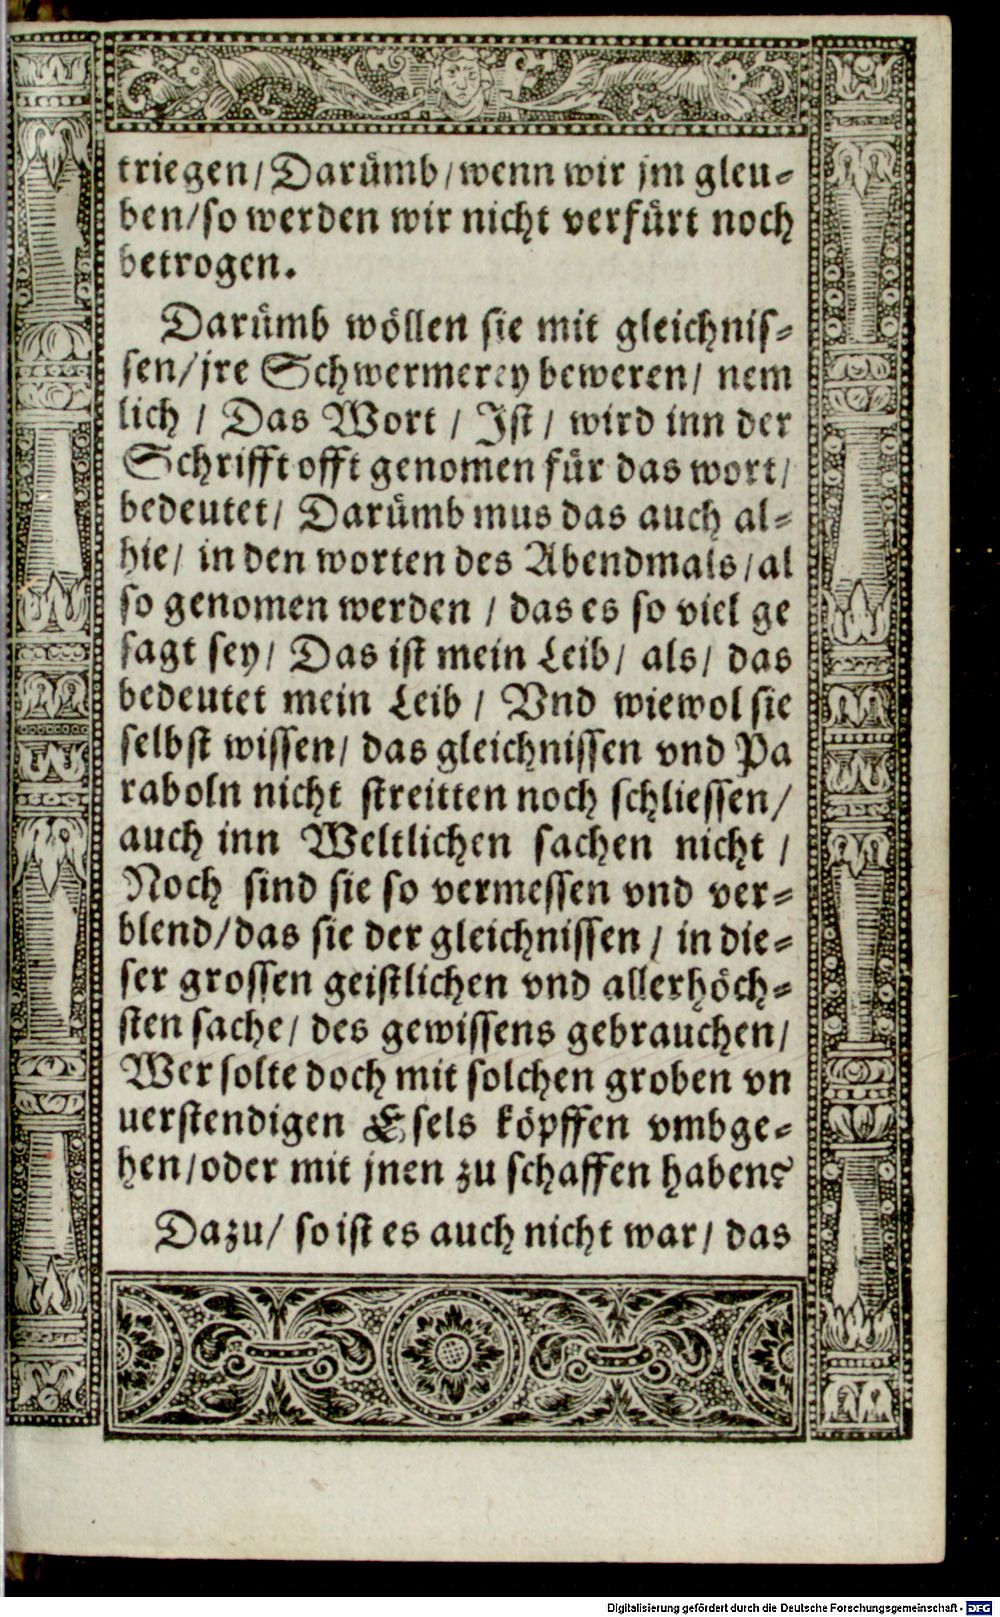 triegen/ Darümb/ wenn wir jm gleu-
ben/ so werden wir nicht verfürt noch
betrogen.
Darümb wöllen sie mit gleichnis-
sen/ jre Schwermerey beweren/ nem
lich / Das Wort / Ist / wird inn der
Schrifft offt genomen für das wort/
bedeutet/ Darümb mus das auch al-
hie/ in den worten des Abendmals/ al
so genomen werden / das es so viel ge
sagt sey/ Das ist mein Leib/ als/ das
bedeutet mein Leib / Vnd wiewol sie
selbst wissen/ das gleichnissen vnd Pa
raboln nicht streitten noch schliessen/
auch inn Weltlichen sachen nicht /
Noch sind sie so vermessen vnd ver-
blend/ das sie der gleichnissen / in die-
ser grossen geistlichen vnd allerhöch-
sten sache/ des gewissens gebrauchen/
Wer solte doch mit solchen groben vn
uerstendigen Esels köpffen vmbge-
hen/ oder mit jnen zu schaffen haben?
Dazu/ so ist es auch nicht war/ das
Digitalisierung gefördert durch die Deutsche Forschungsgemeinschaft - DFG